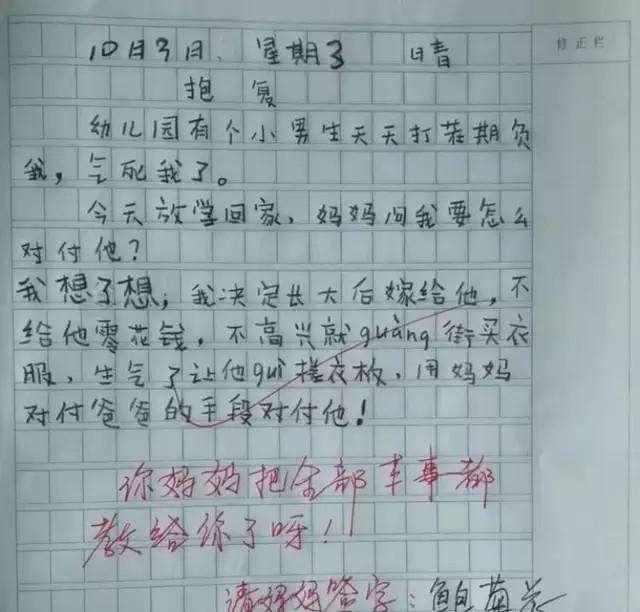 修正栏
10月3日、星期3 晴
抱复
幼儿园有个小男生天天打茬期负
我，气死我了。
今天放学回家，妈妈问我要怎么
对付他？
我想了想，我决定长大后嫁给他，不
给他零花钱，不高兴就guàng街买衣
服、生气了让他guì搓衣板，用妈妈
对付爸爸的手段对付他！
你妈妈把全部本事都
教给你了呀！
请妈妈签字：鲍